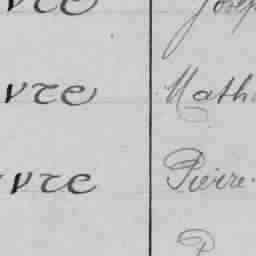 vre
vre Math
vre Pierre.